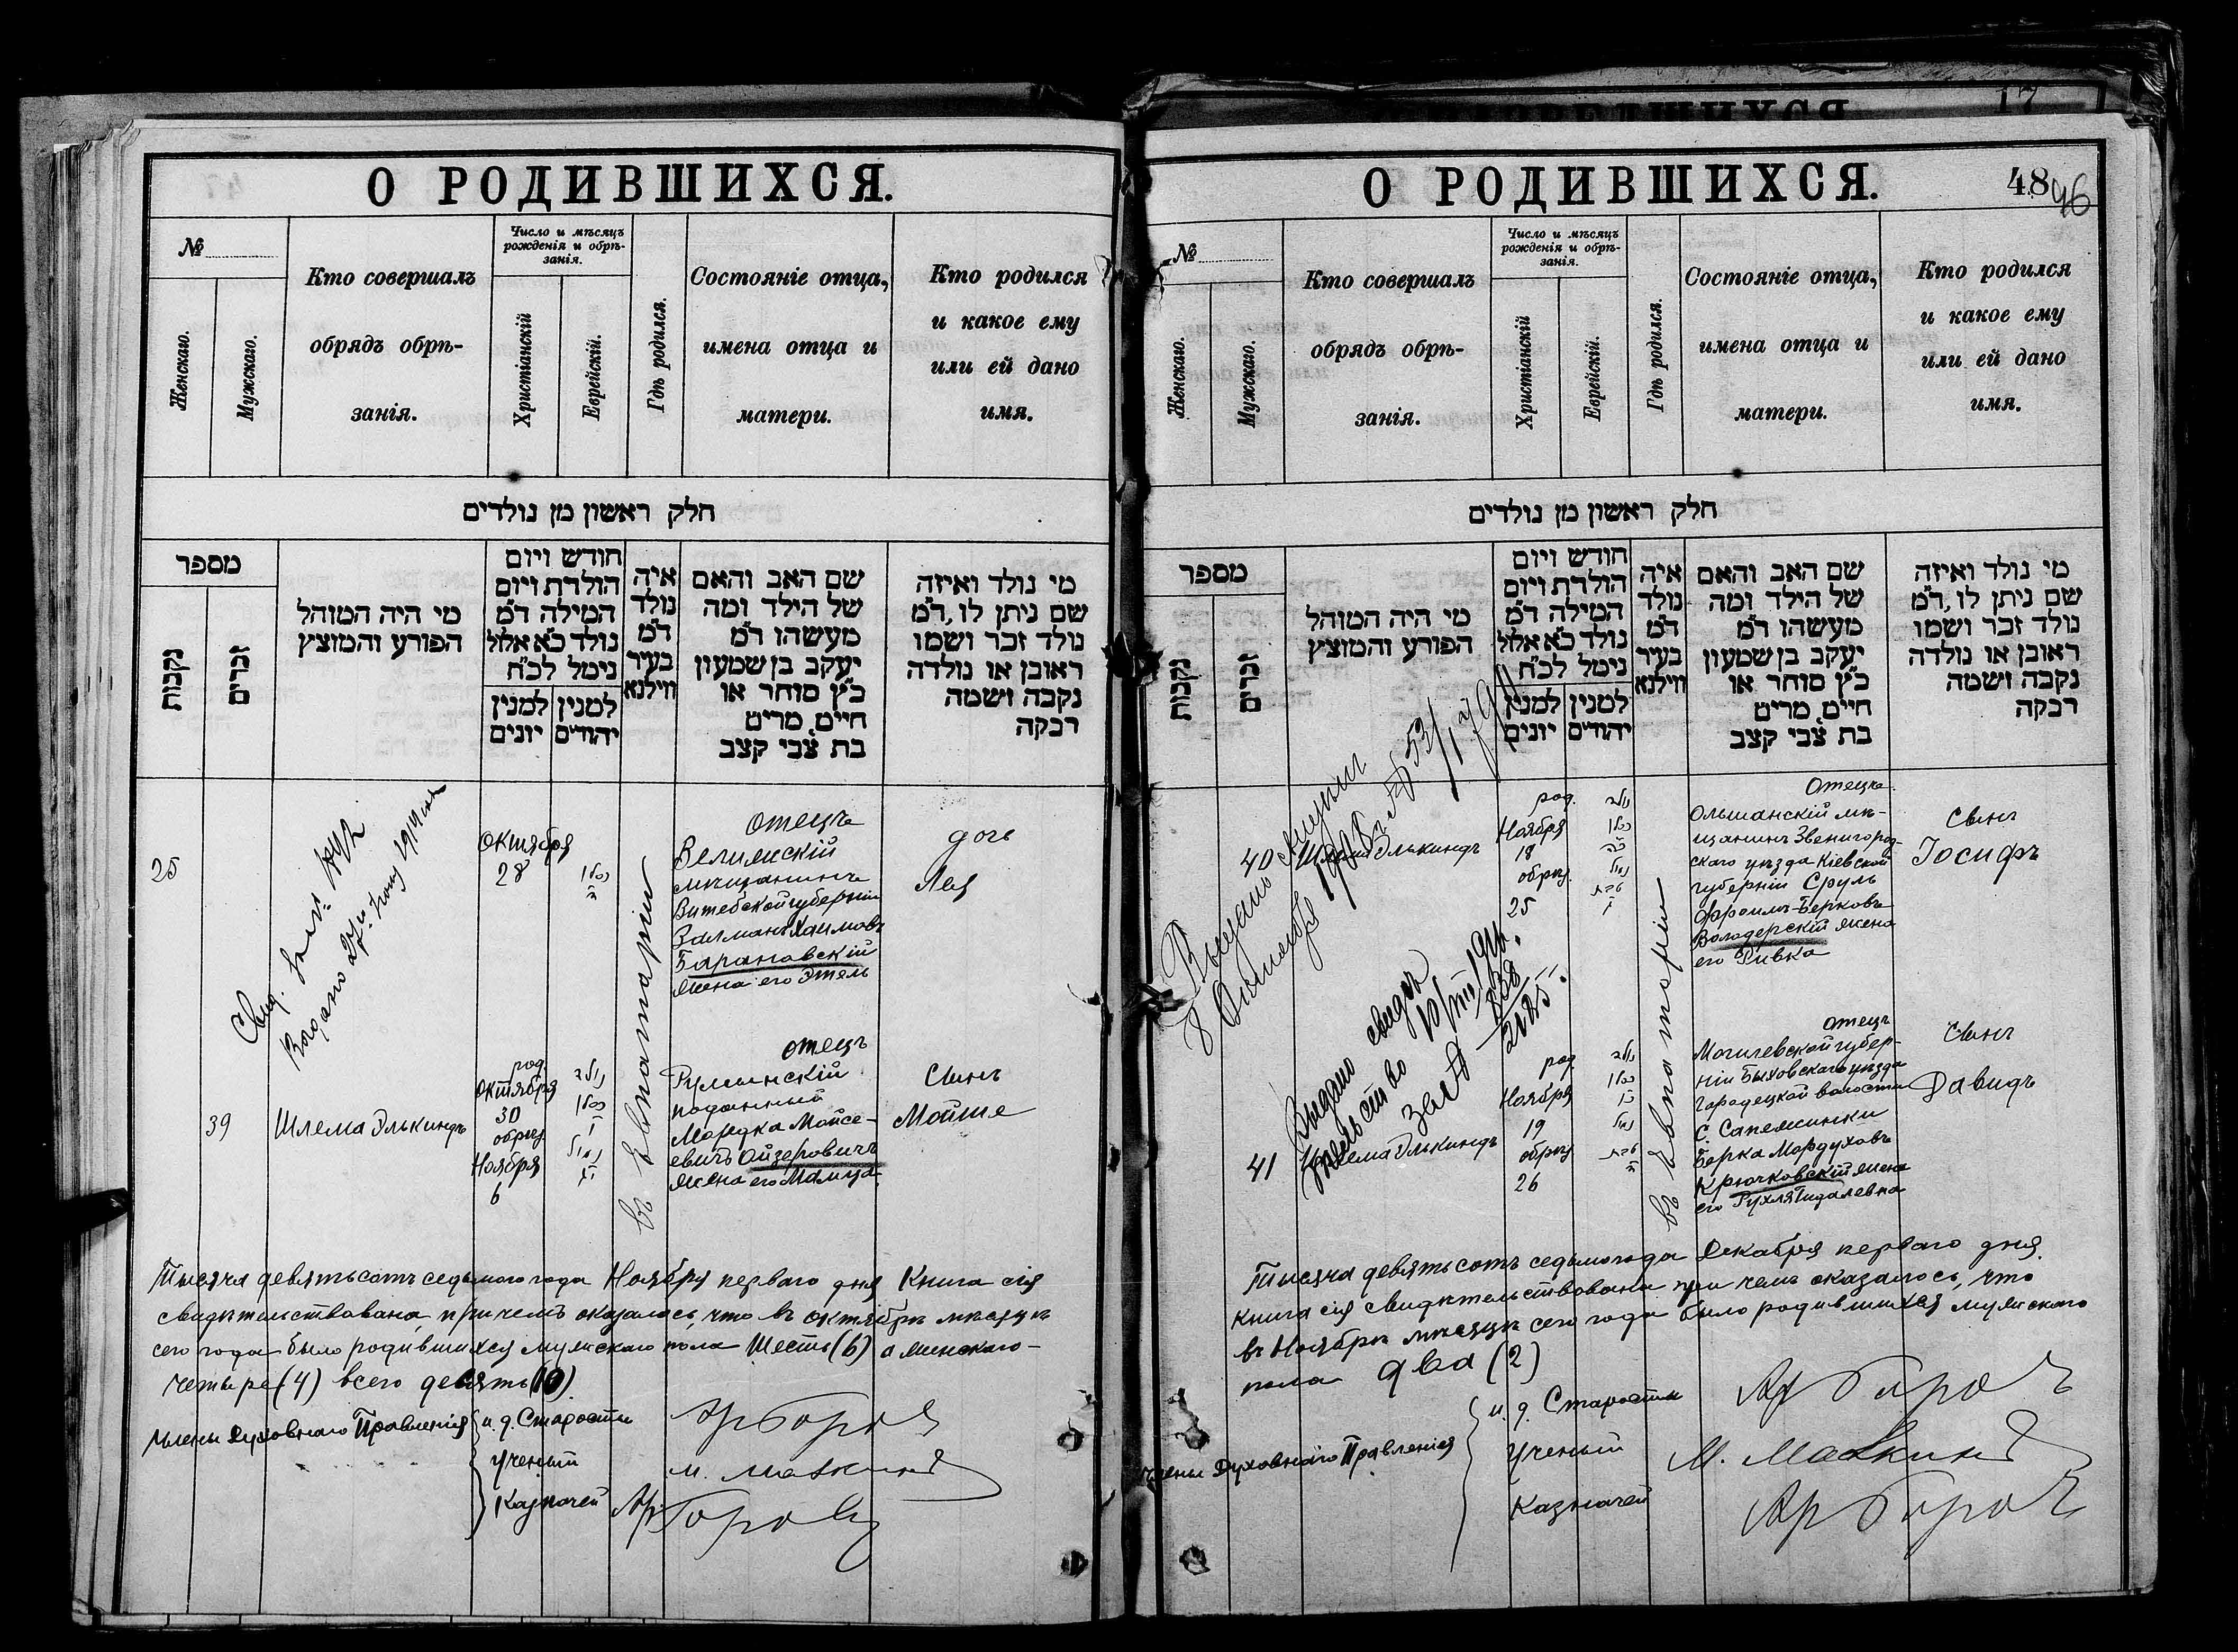 О РОДИВШИХСЯ.
№
Женскаго.
Мужскаго.
Кто совершалъ
обрядъ обрѣ-
занія.
Число и мѣсяцъ
рожденія и обрѣ-
занія.
Христіанскій
Еврейскій.
Гдѣ родился.
Состояніе отца,
имена отца и
матери.
Кто родился
и какое ему
или ей дано
имя.
חלק ראשון מן נולדים
מספר
נקבות
זכרים
מי היה המוהל
הפורע והמוצץ
חודש ויום
הולדת ויום
המילה ד״מ
נולד כ״א אלול
נימל לכ״ח
למנין יהודים
למנין יונים
איה
נולד
ד״מ
בעיר
ווילנא
שם האב והאם
של הילד ומה
מעשהו ד״מ
יעקב בן שמעון
כ״ץ סוחר או
חיים, מרים
בת צבי קצב
מי נולד ואיזה
שם ניתן לו, ד״מ
נולד זכר ושמו
ראובן או נולדה
נקבה ושמה
רבקה
25
Октября
28
въ Евпаторіи
отецъ
Велижскій
мѣщанинъ
Витебской губерніи
Залманъ Хаимовъ
Барановскій
жена его Этель
дочь
Лея
39
Шлема Элькиндъ
род.
Октября
30
обрѣз.
Ноября
6
отецъ
Румынскій
поданный
Мордка Мойсе-
евичъ Ойзеровичъ
жена его Малца
Сынъ
Мойше
Тысяча девятьсотъ седьмого года Ноября перваго дня Книга сія
свидѣтельствована, при чемъ оказалось, что въ октябрѣ мѣсяцѣ
сего года было родившихся мужскаго пола Шесть (6) а женскаго-
четыре (4) всего девять (10)
Члены Духовнаго Правленія
и. д. Старосты
Ученый
Казначей
О РОДИВШИХСЯ.
48
96
№
Женскаго.
Мужскаго.
Кто совершалъ
обрядъ обрѣ-
занія.
Число и мѣсяцъ
рожденія и обрѣ-
занія.
Христіанскій
Еврейскій.
Гдѣ родился.
Состояніе отца,
имена отца и
матери.
Кто родился
и какое ему
или ей дано
имя.
חלק ראשון מן נולדים
מספר
נקבות
זכרים
מי היה המוהל
הפורע והמוצץ
חודש ויום
הולדת ויום
המילה ד״מ
נולד כ״א אלול
נימל לכ״ח
למנין יהודים
למנין יונים
איה
נולד
ד״מ
בעיר
ווילנא
שם האב והאם
של הילד ומה
מעשהו ד״מ
יעקב בן שמעון
כ״ץ סוחר או
חיים, מרים
בת צבי קצב
מי נולד ואיזה
שם ניתן לו, ד״מ
נולד זכר ושמו
ראובן או נולדה
נקבה ושמה
רבקה
40
Шлема Элькиндъ
род.
Ноября
18
обрѣз.
25
въ Евпаторіи
Отецъ
Ольшанскій мѣ-
щанинъ Звенигород-
скаго уѣзда Кіевской
губерніи Сруль
Фроимъ-Берковъ
Володерскій жена
его Ривка
Сынъ
Іосифъ
41
Шлема Элькиндъ
род.
Ноября
19
обрѣз.
26
отецъ
Могилевской губер-
ніи Быховскаго уѣзда
Городецкой волости
С. Сапежинки
Берка Мордуховъ
Крючковскій жена
его Рухля Гидалевна
Сынъ
Давидъ
Тысяча девятьсотъ седьмого года Декабря перваго дня
книга сія свидѣтельствована при чемъ оказалось, что
въ Ноябрѣ мѣсяцѣ сего года было родившихся мужскаго
пола два (2)
Члены Духовнаго Правленія
и. д. Старосты
Ученый
Казначей